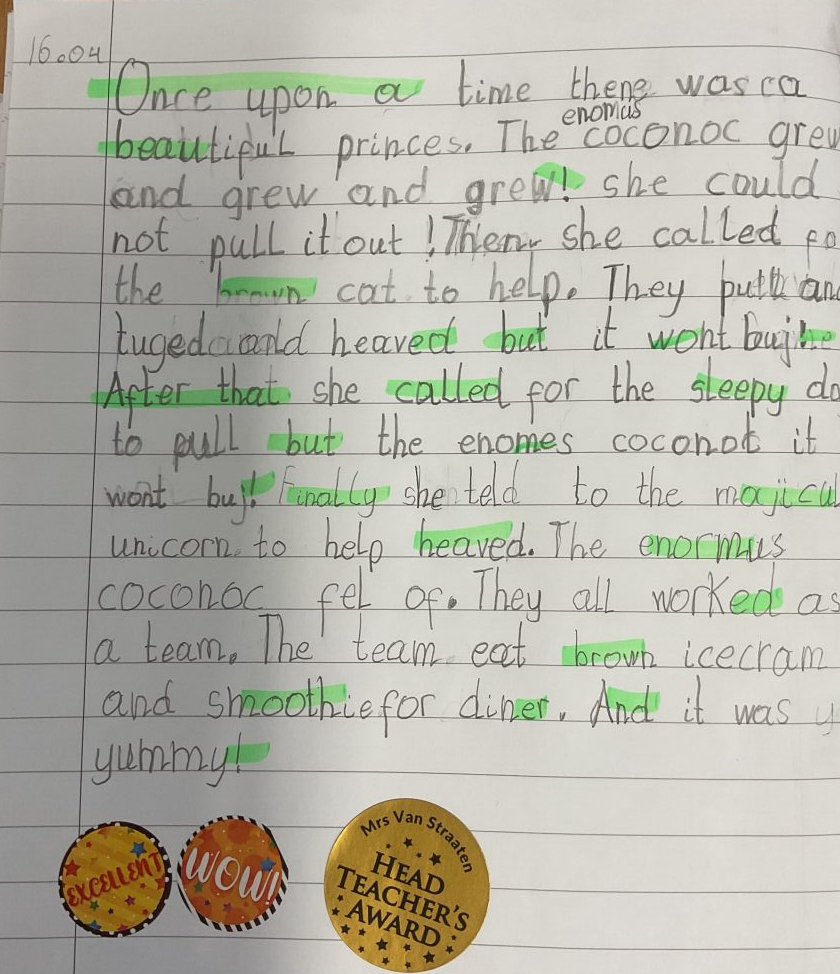 16.04
Once upon a time there was a
enomas
beautiful princes. The coconoc grew
and grew and grew! she could
not pull it out! Then she called fo
the brown cat to help. They pull an
tuged and heaved but it wont buj
After that she called for the sleepy do
to pull but the enomes coconot it
wont buj! Finally she teld to the majical
unicorn to help heaved. The enormus
coconoc fel of. They all worked as
a team. The team eat brown icecram
and smoothie for diner. And it was y
yummy!
EXCELLENT
WOW!
Mrs Van Straaten
HEAD
TEACHER'S
AWARD